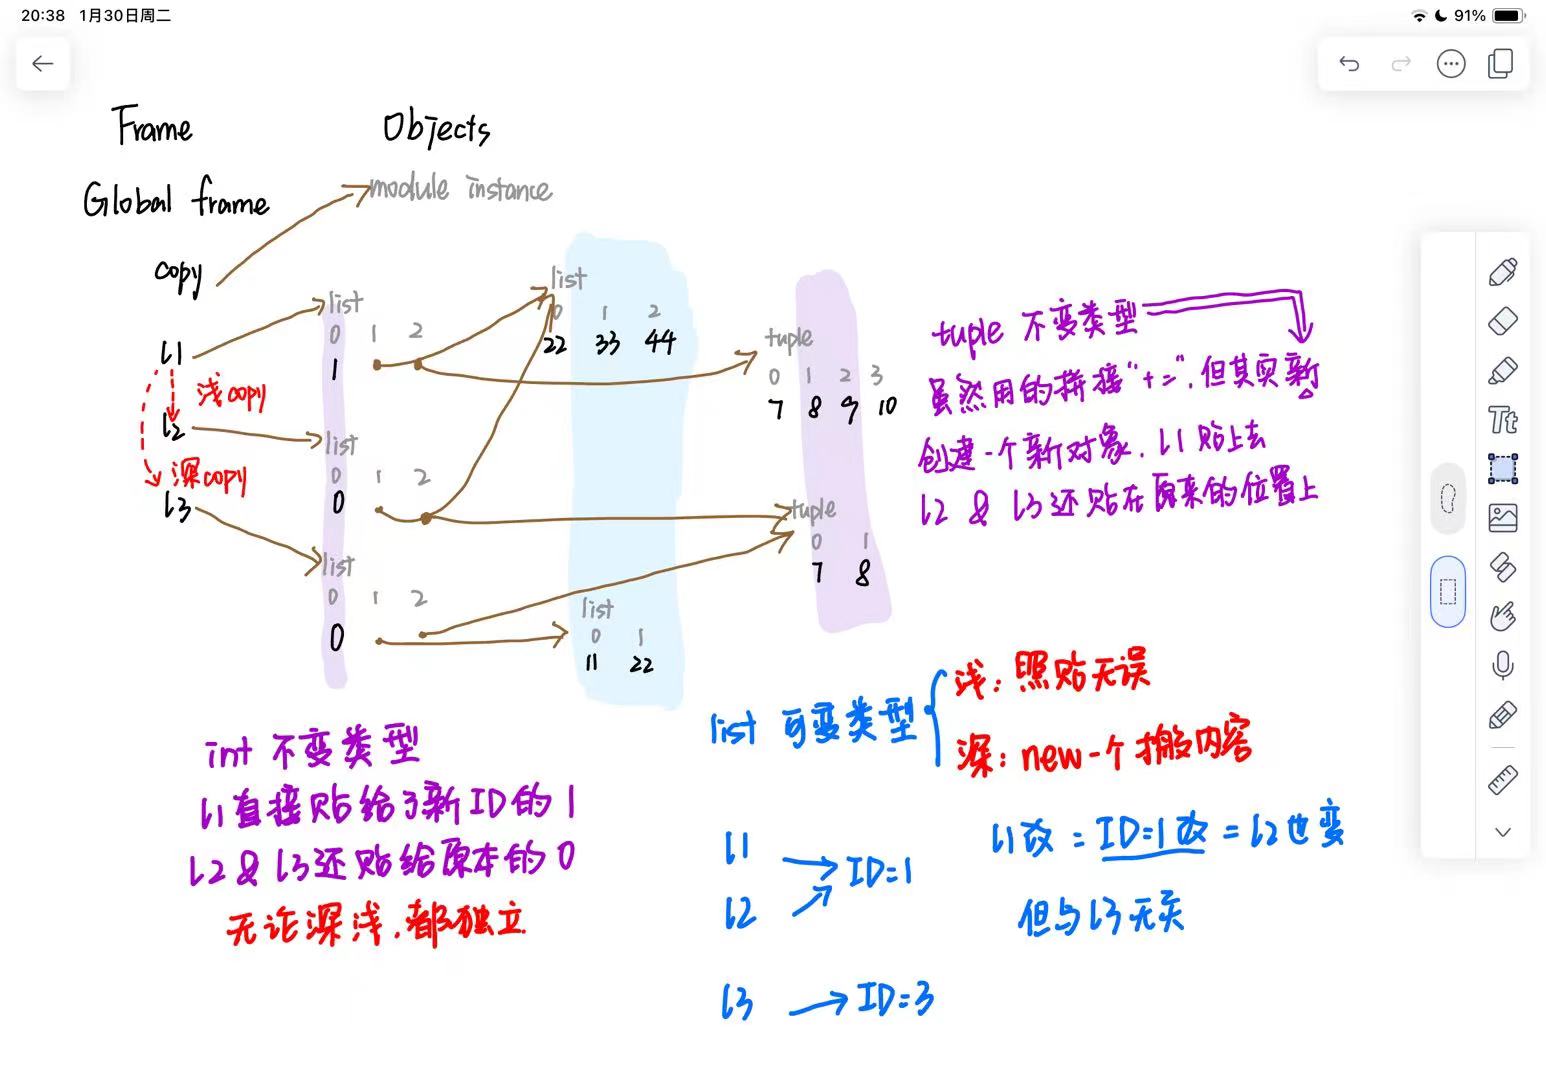 20:38 1月30日周二
91%
Frame Objects
Global frame
module instance
copy
list
0 1 2
22 33 44
list
0 1 2
1
l1
浅copy
l2
深copy
l3
list
0 1 2
0
list
0 1 2
0
list
0 1
11 22
tuple
0 1 2 3
7 8 9 10
tuple
0 1
7 8
tuple 不变类型
虽然用的拼接"+=",但其实新
创建一个新对象,l1贴上去
l2 & l3还贴在原来的位置上
int 不变类型
l1直接贴给了新ID的1
l2&l3还贴给原本的0
无论深浅,都独立
list 可变类型
浅:照贴无误
深:new一个搬内容
l1
l2
ID=1
l3
ID=3
l1改=ID=1改=l2也变
但与l3无关
Tt